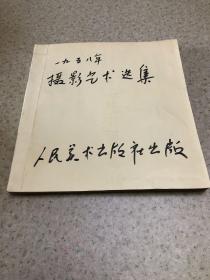 一九五八年
摄影艺术选集
人民美术出版社出版